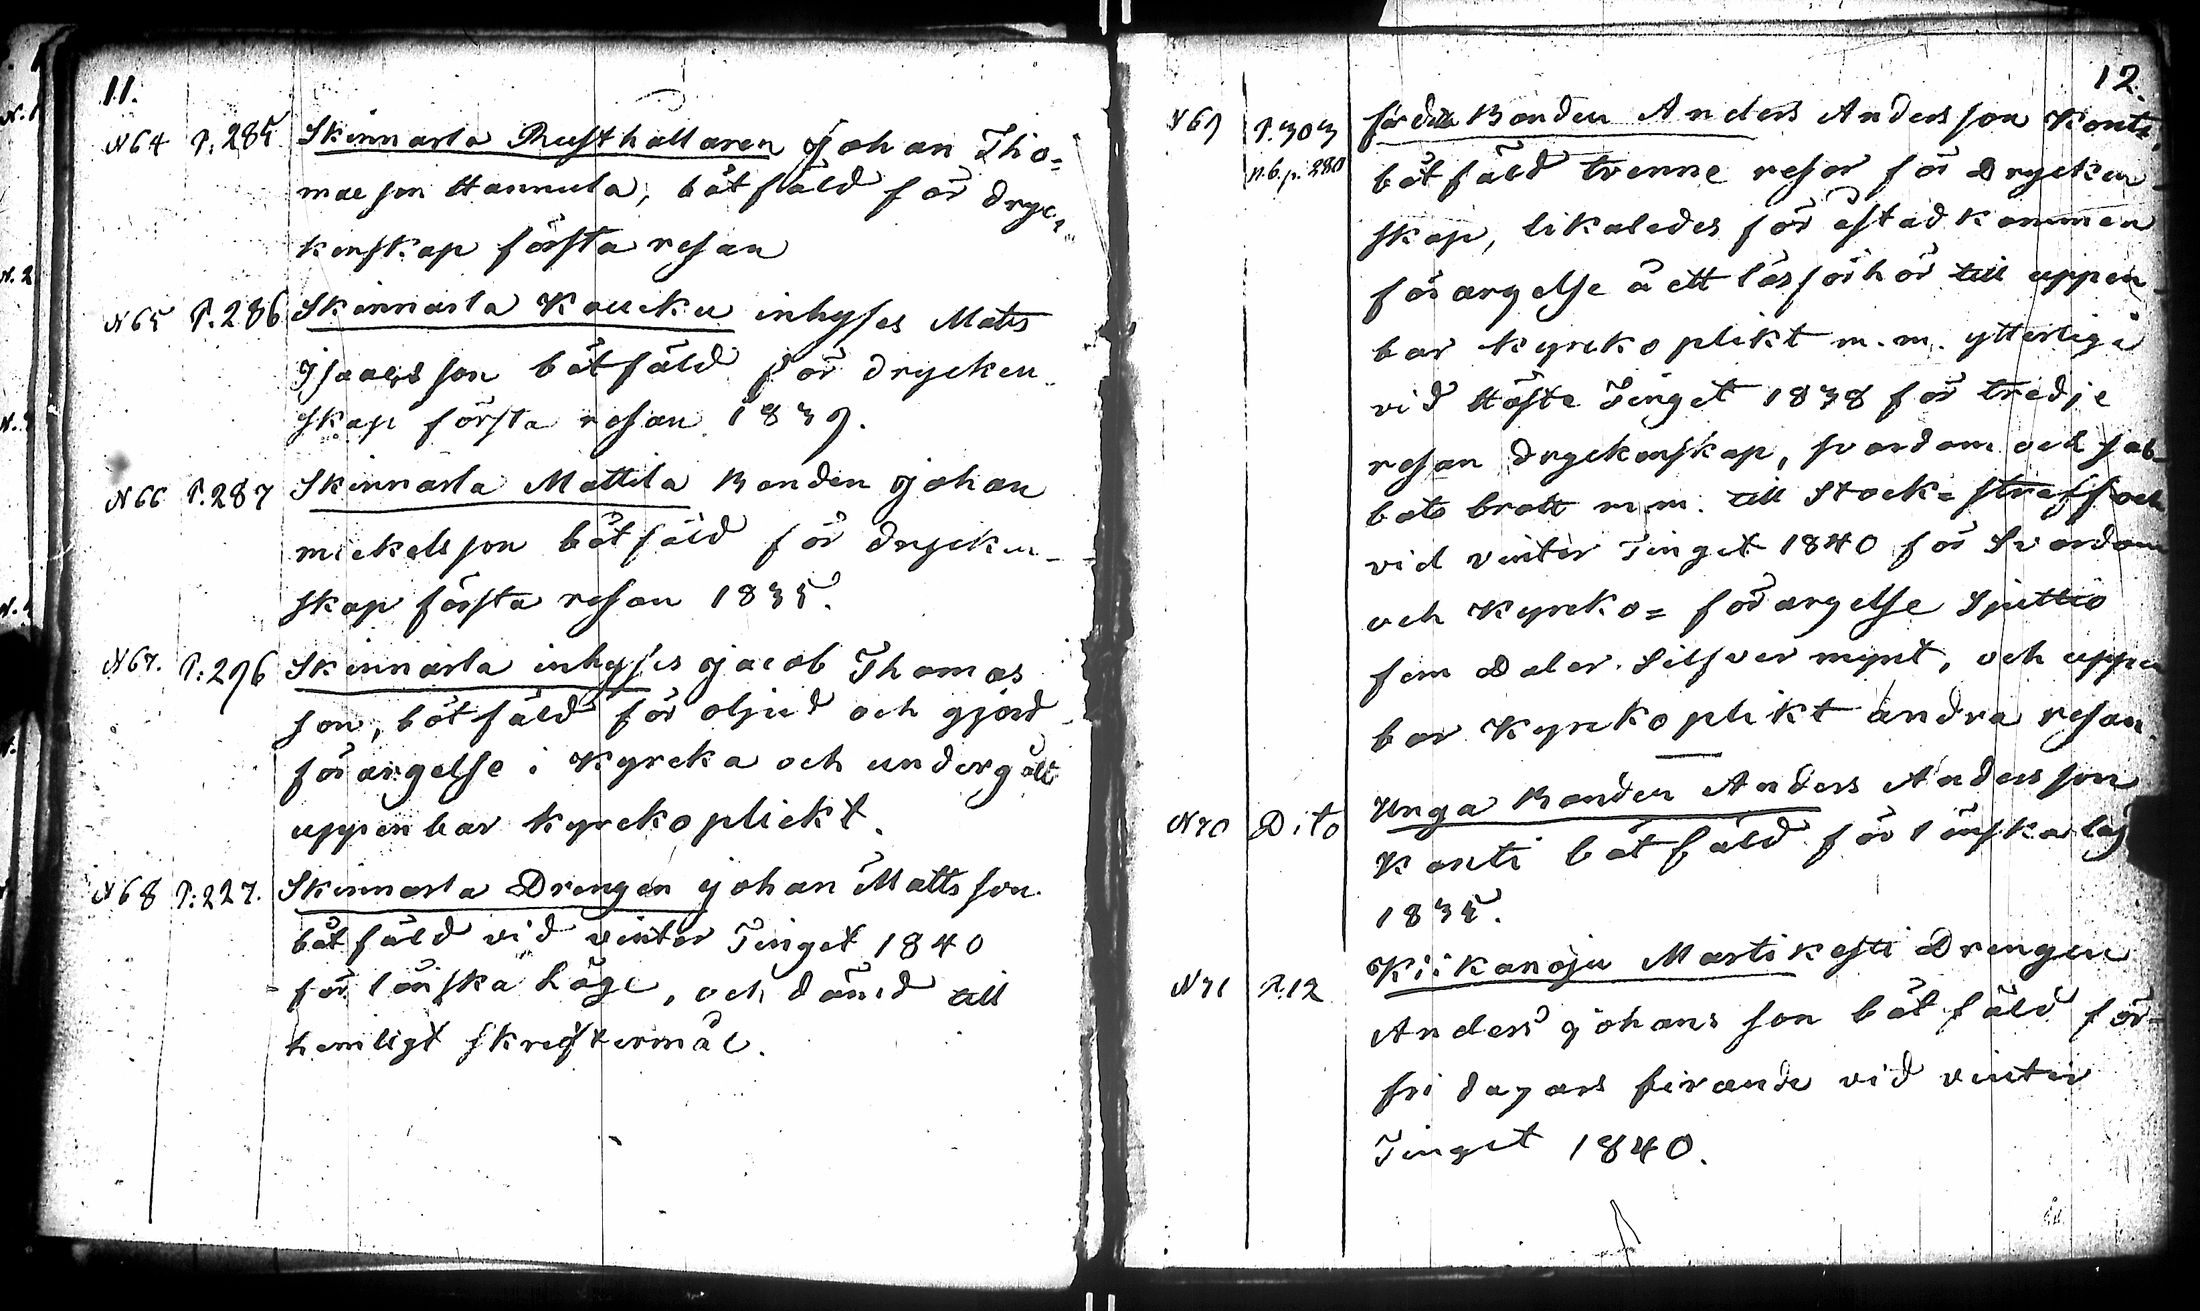 11.
N 64 P. 285 Skinnarla Rusthållaren Johan Tho=
maesson Hannula, bötfäld för dryc=
kenskap första resan
N 65 P. 286 Skinnarla Koucku inhyses Mats
Isaacsson bötfäld för drycken-
skap första resan 1839.
N 66 P. 287 Skinnarla Mattila Bonden Johan
mickelsson bötfäld för drycken-
skap första resan 1835.
N 67. P. 296 Skinnarla inhyses Jacob Thomas
son, bötfäld för oljud och gjord
förargelse i Kyrcka och undergått
uppenbar kyrckoplickt.
N 68 P. 227. Skinnarla Drengen Johan Mattsson
bötfäld vid vinter Tinget 1840
för lönskaläge, och dömd till
hemligt skriftermål.
12.
N 69 P. 303 för detta Bonden Anders Andersson Konti,
n.b.p. 280 bötfäld trenne resor för Drycken-
skap, likaledes för åstadkommen
förargelse å ett läsförhör till uppen-
bar kyrckoplikt m.m. ytterliga
vid Höste Tinget 1838 för tredje
resan dryckenskap, svordom och sab-
bats brott m.m. till Stock= straff och
vid vinter Tinget 1840 för Svordom
och Kyrcko= förargelse Sjuttio
fem Daler Silfver mynt, och uppen
bar Kyrckoplikt andra resan.
N 70 Dito Unga Bonden Anders Andersson
Konti bötfäld för lönskaläg
1835.
N 71 P. 12 Kiikanoju Martikesti Drengen
Anders Johansson bötfäld för
fridagars firande vid vinter
Tinget 1840.